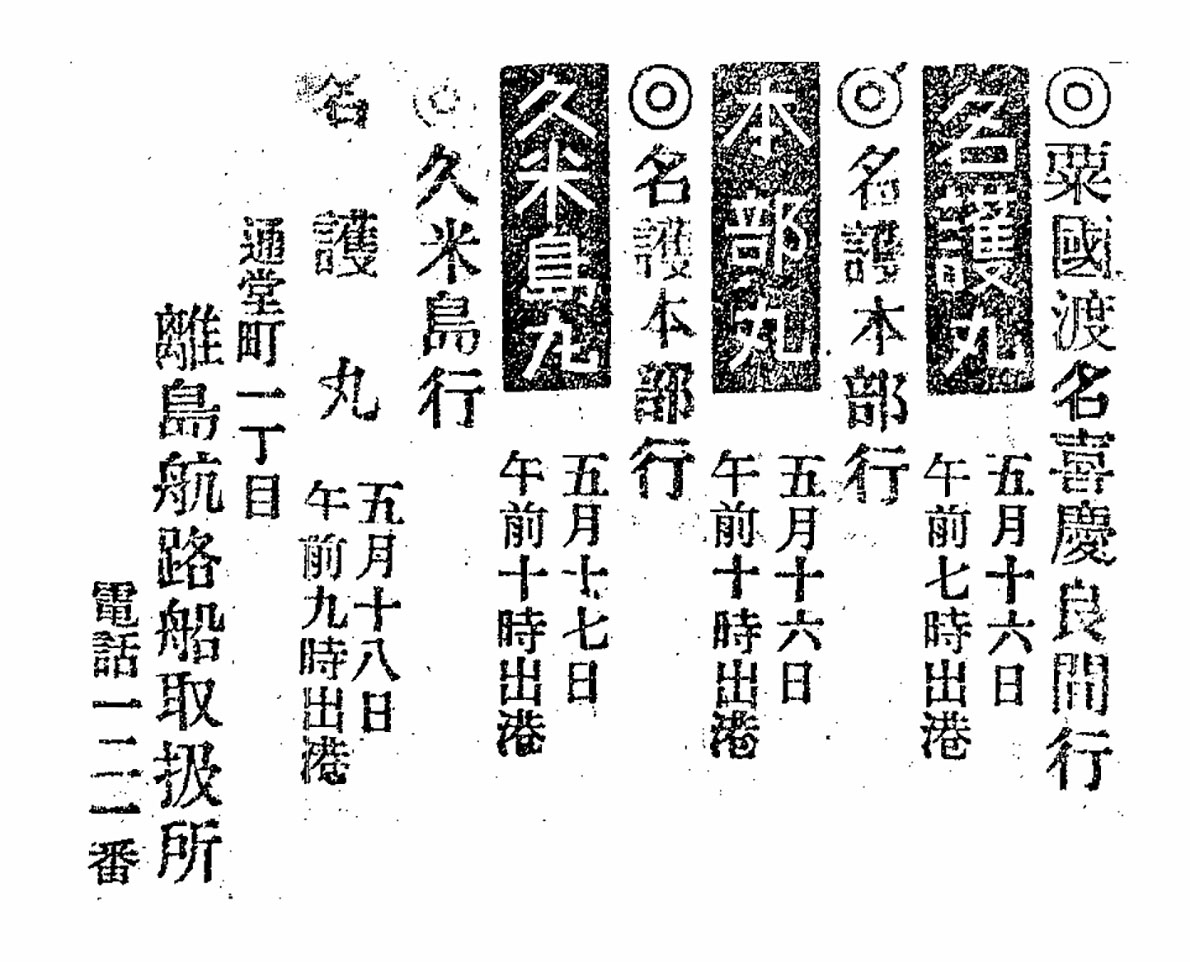 ◎粟國渡名喜慶良間行
名護丸
五月十六日
午前七時出港
◎名護本部行
本部丸
五月十六日
午前十時出港
◎名護本部行
久米島丸
五月十七日
午前十時出港
◎久米島行
名護丸
五月十八日
午前九時出港
通堂町一丁目
離島航路船取扱所
電話一二一番